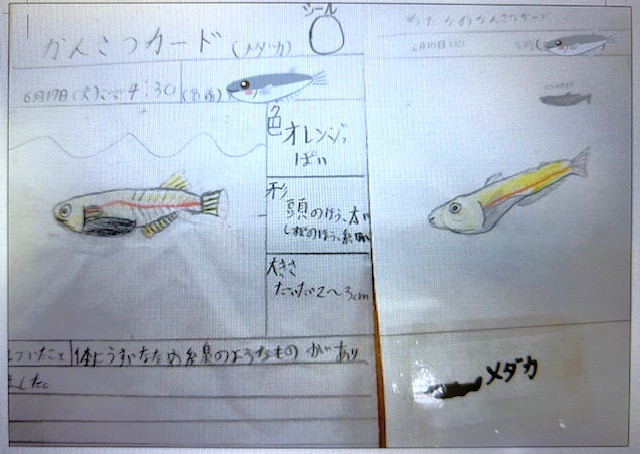 シール
かんさつカード(メダカ)
6月17日(火)
4:30
(名前)
色
オレンジっ
ぽい
形
頭のほう、太い
しっぽのほう、細い
大きさ
だいたい2〜3cm
体にうすいななめ線のようなものがあり
ました
6月17日
メダカ